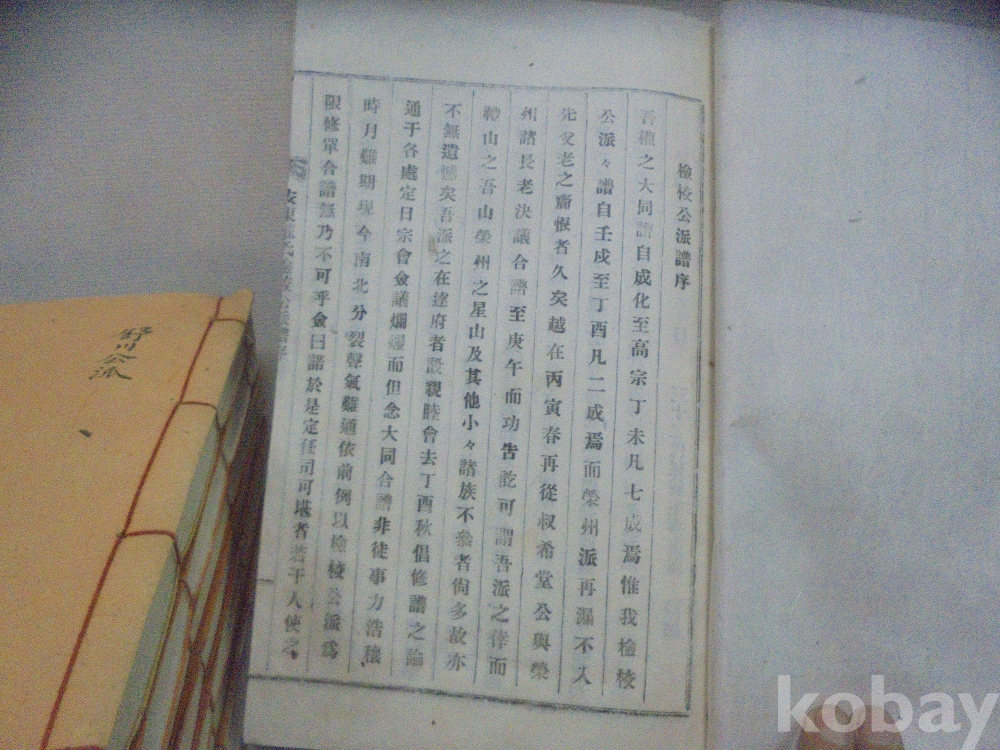 檢校公派譜序
吾權之大同譜自成化至高宗丁未凡七成焉惟我檢校
公派々譜自壬戌至丁酉凡二成焉而榮州派再漏不入
先父老之齎恨者久矣越在丙寅春再從叔希堂公與榮
州諸長老決議合譜至庚午而功告訖可謂吾派之幸而
禮山之吾山榮州之星山及其他小々諸族不叅者尙多故亦
不無遺憾矣吾派之在達府者設親睦會去丁酉秋倡修譜之論
通于各處定日宗會僉議爛熳而但念大同合譜非徒事力浩穰
時月難期現今南北分裂聲氣難通依前例以檢校公派爲
限修單合譜無乃不可乎僉曰諾於是定任司可堪者若干人使之
安東權氏檢校公派譜序
舒川公派
kobay